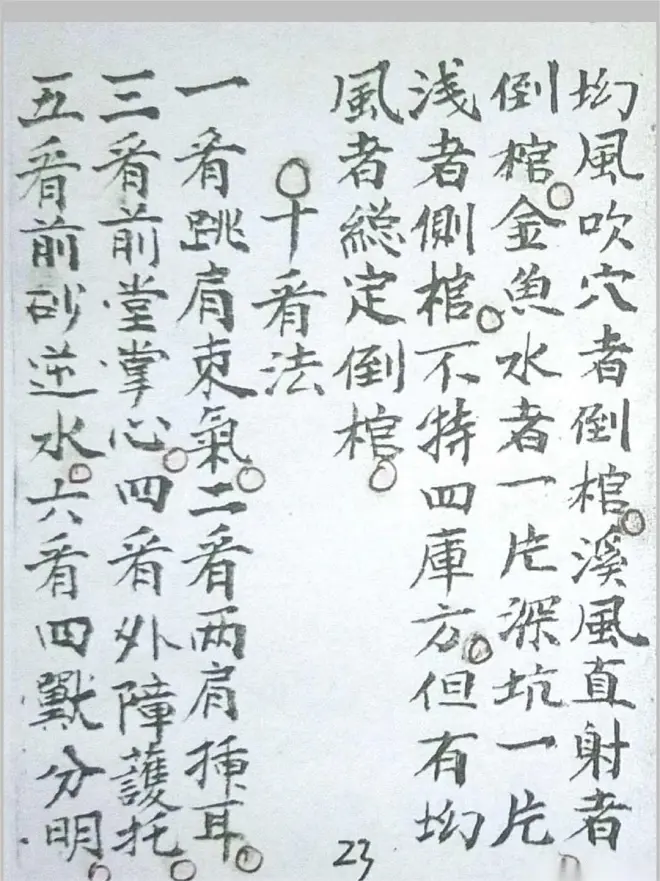 坳風吹穴者倒棺○溪風直射者
倒棺○金魚水者一片深坑一片
浅者側棺○不特四庫方○但有坳
風者總定倒棺○
○十看法
一看跳肩束氣○二看两肩揷耳○
三看前堂掌心○四看外障護托○
五看前砂逆水○六看四獸分明○
23